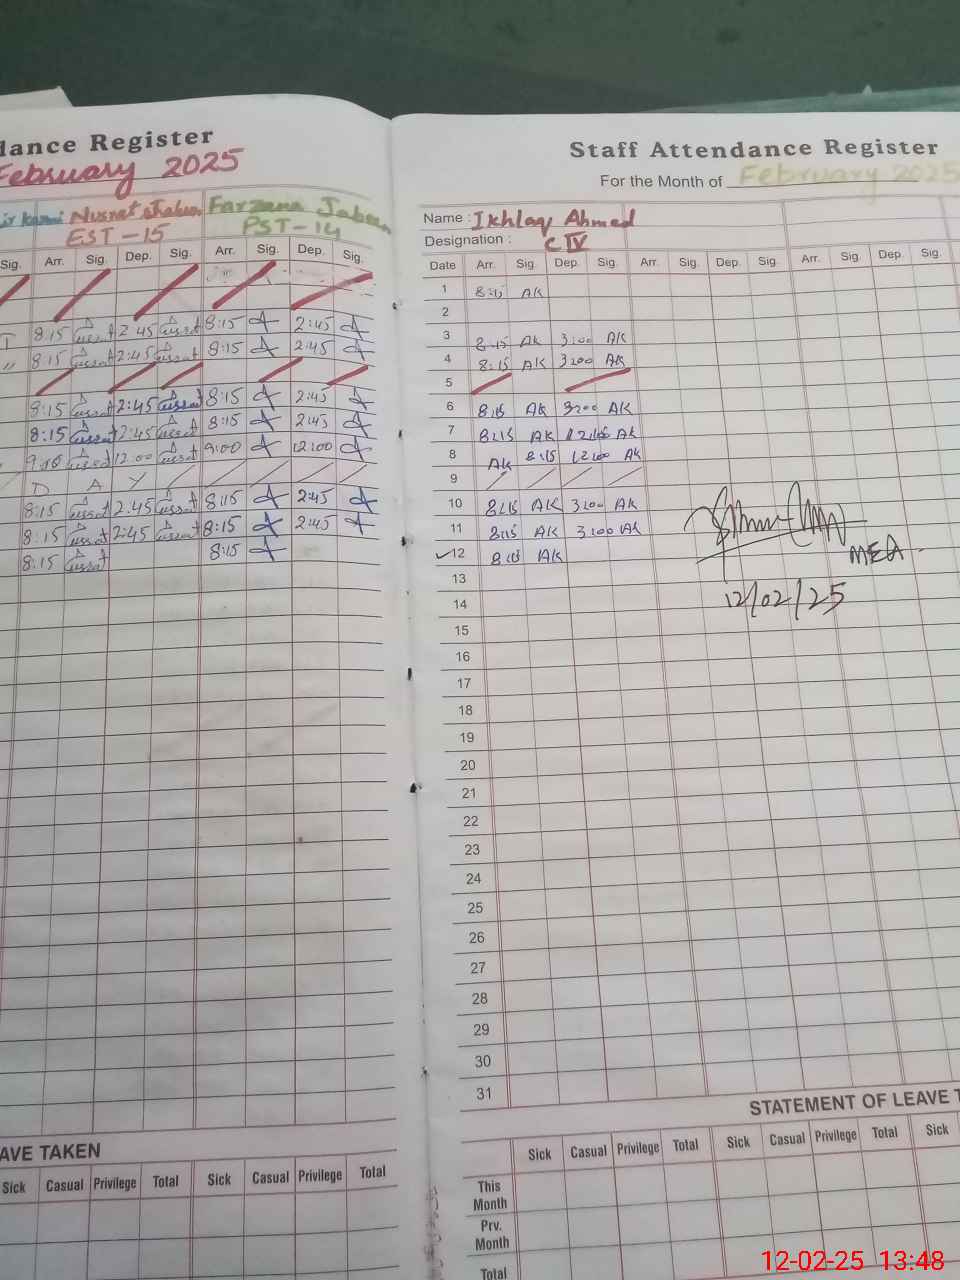 dance Register
February 2025
ir kazmi Nusrat Jabeen Farzana Jabeen
EST-15 PST-14
Sig. Arr. Sig. Dep. Sig. Arr. Sig. Dep. Sig.
8:15 2:45 8:15 2:45
" 8:15 2:45 8:15 2:45
8:15 2:45 8:15 2:45
8:15 2:45 8:15 2:45
9:00 12:00 9:00 12:00
D A Y
8:15 2:45 8:15 2:45
8:15 2:45 8:15 2:45
8:15 8:15
AVE TAKEN
Sick Casual Privilege Total Sick Casual Privilege Total
Staff Attendance Register
For the Month of February 2025
Name : Ikhlaq Ahmed
Designation : C IV
Date Arr. Sig. Dep. Sig. Arr. Sig. Dep. Sig. Arr. Sig. Dep. Sig.
1 8:15 AK
2
3 8:15 AK 3:00 AK
4 8:15 AK 3:00 AK
5
6 8:15 AK 3:00 AK
7 8:15 AK 12:00 AK
8 AK 8:15 12:00 AK
9
10 8:15 AK 3:00 AK
11 8:15 AK 3:00 AK
12 8:15 AK
MEA
12/02/25
13
14
15
16
17
18
19
20
21
22
23
24
25
26
27
28
29
30
31
STATEMENT OF LEAVE T
Sick Casual Privilege Total Sick Casual Privilege Total Sick
This Month
Prv. Month
Total
12-02-25 13:48